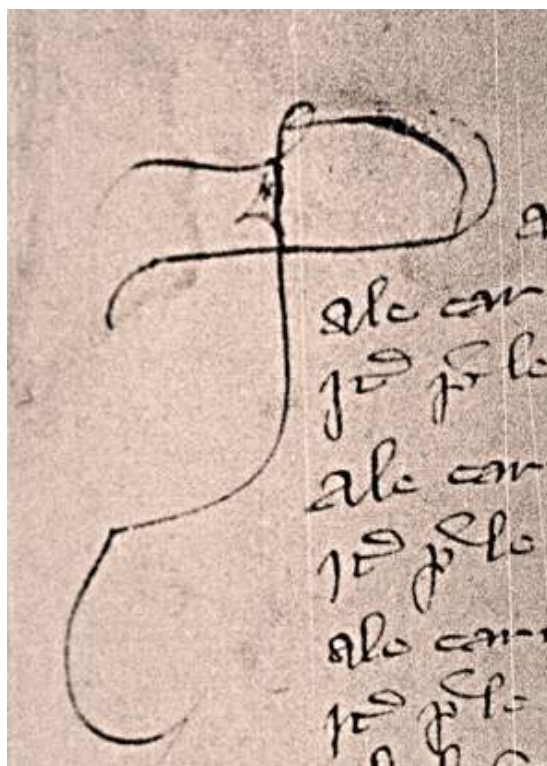 P
a
ale car
jt̃ p̃ le
ale car
jt̃ p̃ le
ale car
jt̃ p̃ le